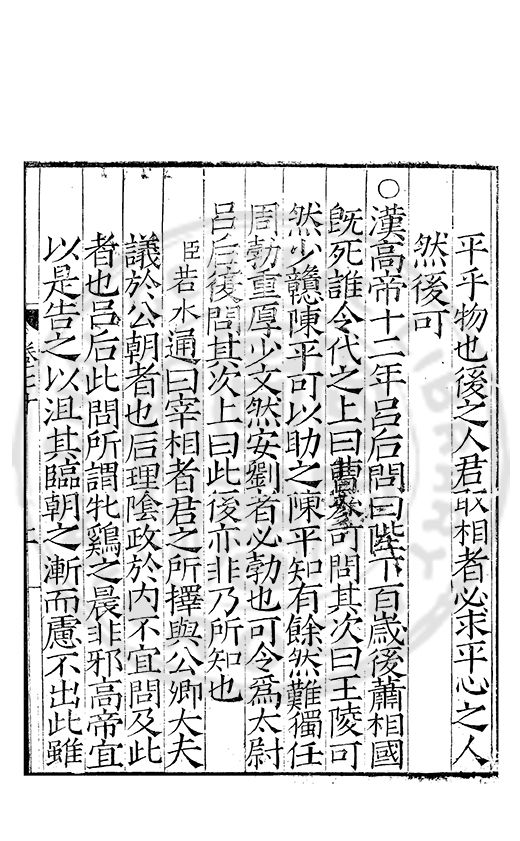 平乎物也後之人君取相者必求平心之人
然後可
○漢高帝十二年呂后問曰陛下百歲後蕭相國
旣死誰令代之上曰曹參可問其次曰王陵可
然少戇陳平可以助之陳平知有餘然難獨任
周勃重厚少文然安劉者必勃也可令爲太尉
呂后復問其次上曰此後亦非乃所知也
臣若水通曰宰相者君之所擇與公卿大夫
議於公朝者也后理陰政於内不宜問及此
者也呂后此問所謂牝鷄之晨非邪高帝宜
以是告之以沮其臨朝之漸而慮不出此雖